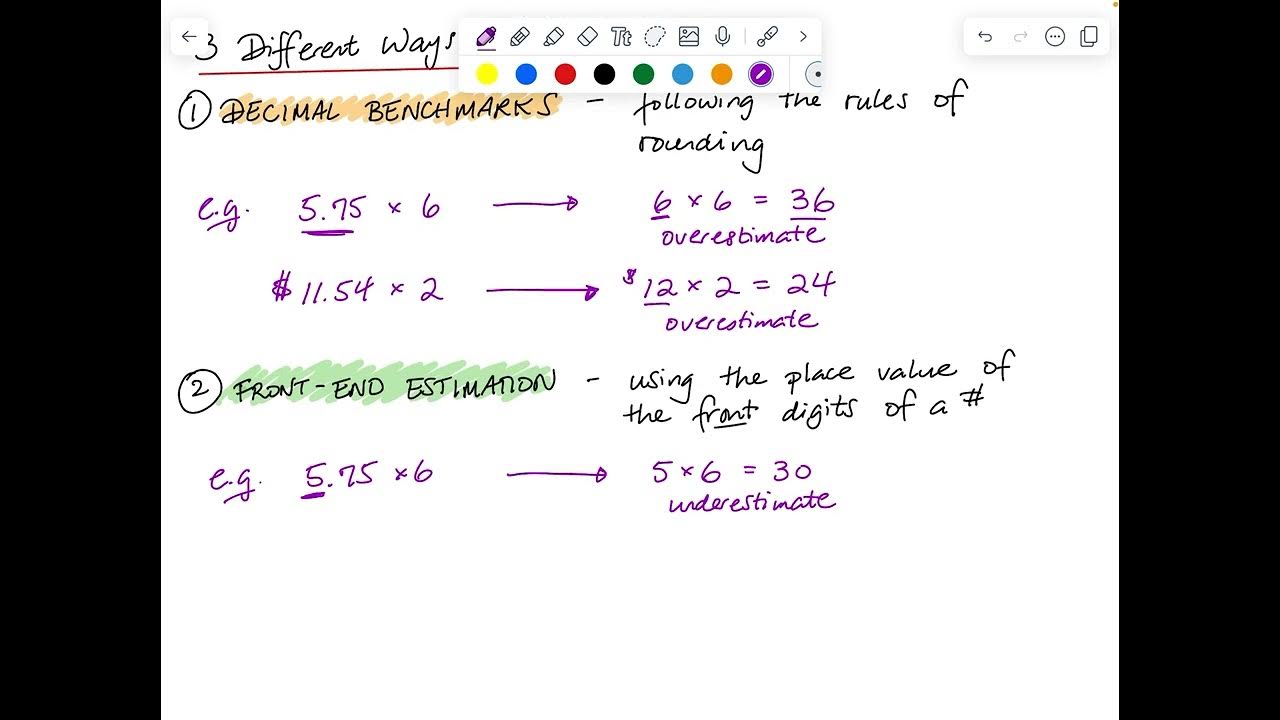 3 Different Ways
Tt
① DECIMAL BENCHMARKS - following the rules of
rounding
e.g. 5.75 × 6 → 6 × 6 = 36
overestimate
$11.54 × 2 → $12 × 2 = 24
overestimate
② FRONT-END ESTIMATION - using the place value of
the front digits of a #
e.g. 5.75 × 6 → 5 × 6 = 30
underestimate